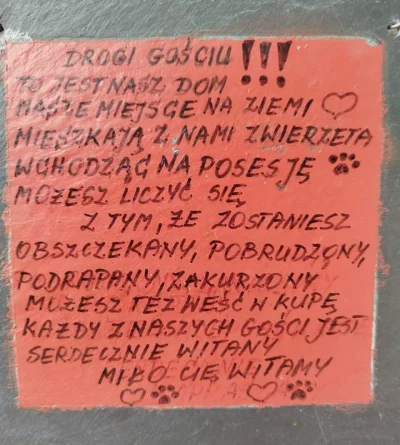 DROGI GOŚCIU!!!
TO JEST NASZ DOM
NASZE MIEJSCE NA ZIEMI
MIESZKAJĄ Z NAMI ZWIERZĘTA
WCHODZĄC NA POSESJĘ
MOŻESZ LICZYĆ SIĘ
Z TYM, ŻE ZOSTANIESZ
OBSZCZEKANY, POBRUDZONY,
PODRAPANY, ZAKURZONY
MOŻESZ TEŻ WEŚĆ W KUPĘ
KAŻDY Z NASZYCH GOŚCI JEST
SERDECZNIE WITANY
MIŁO CIĘ WITAMY